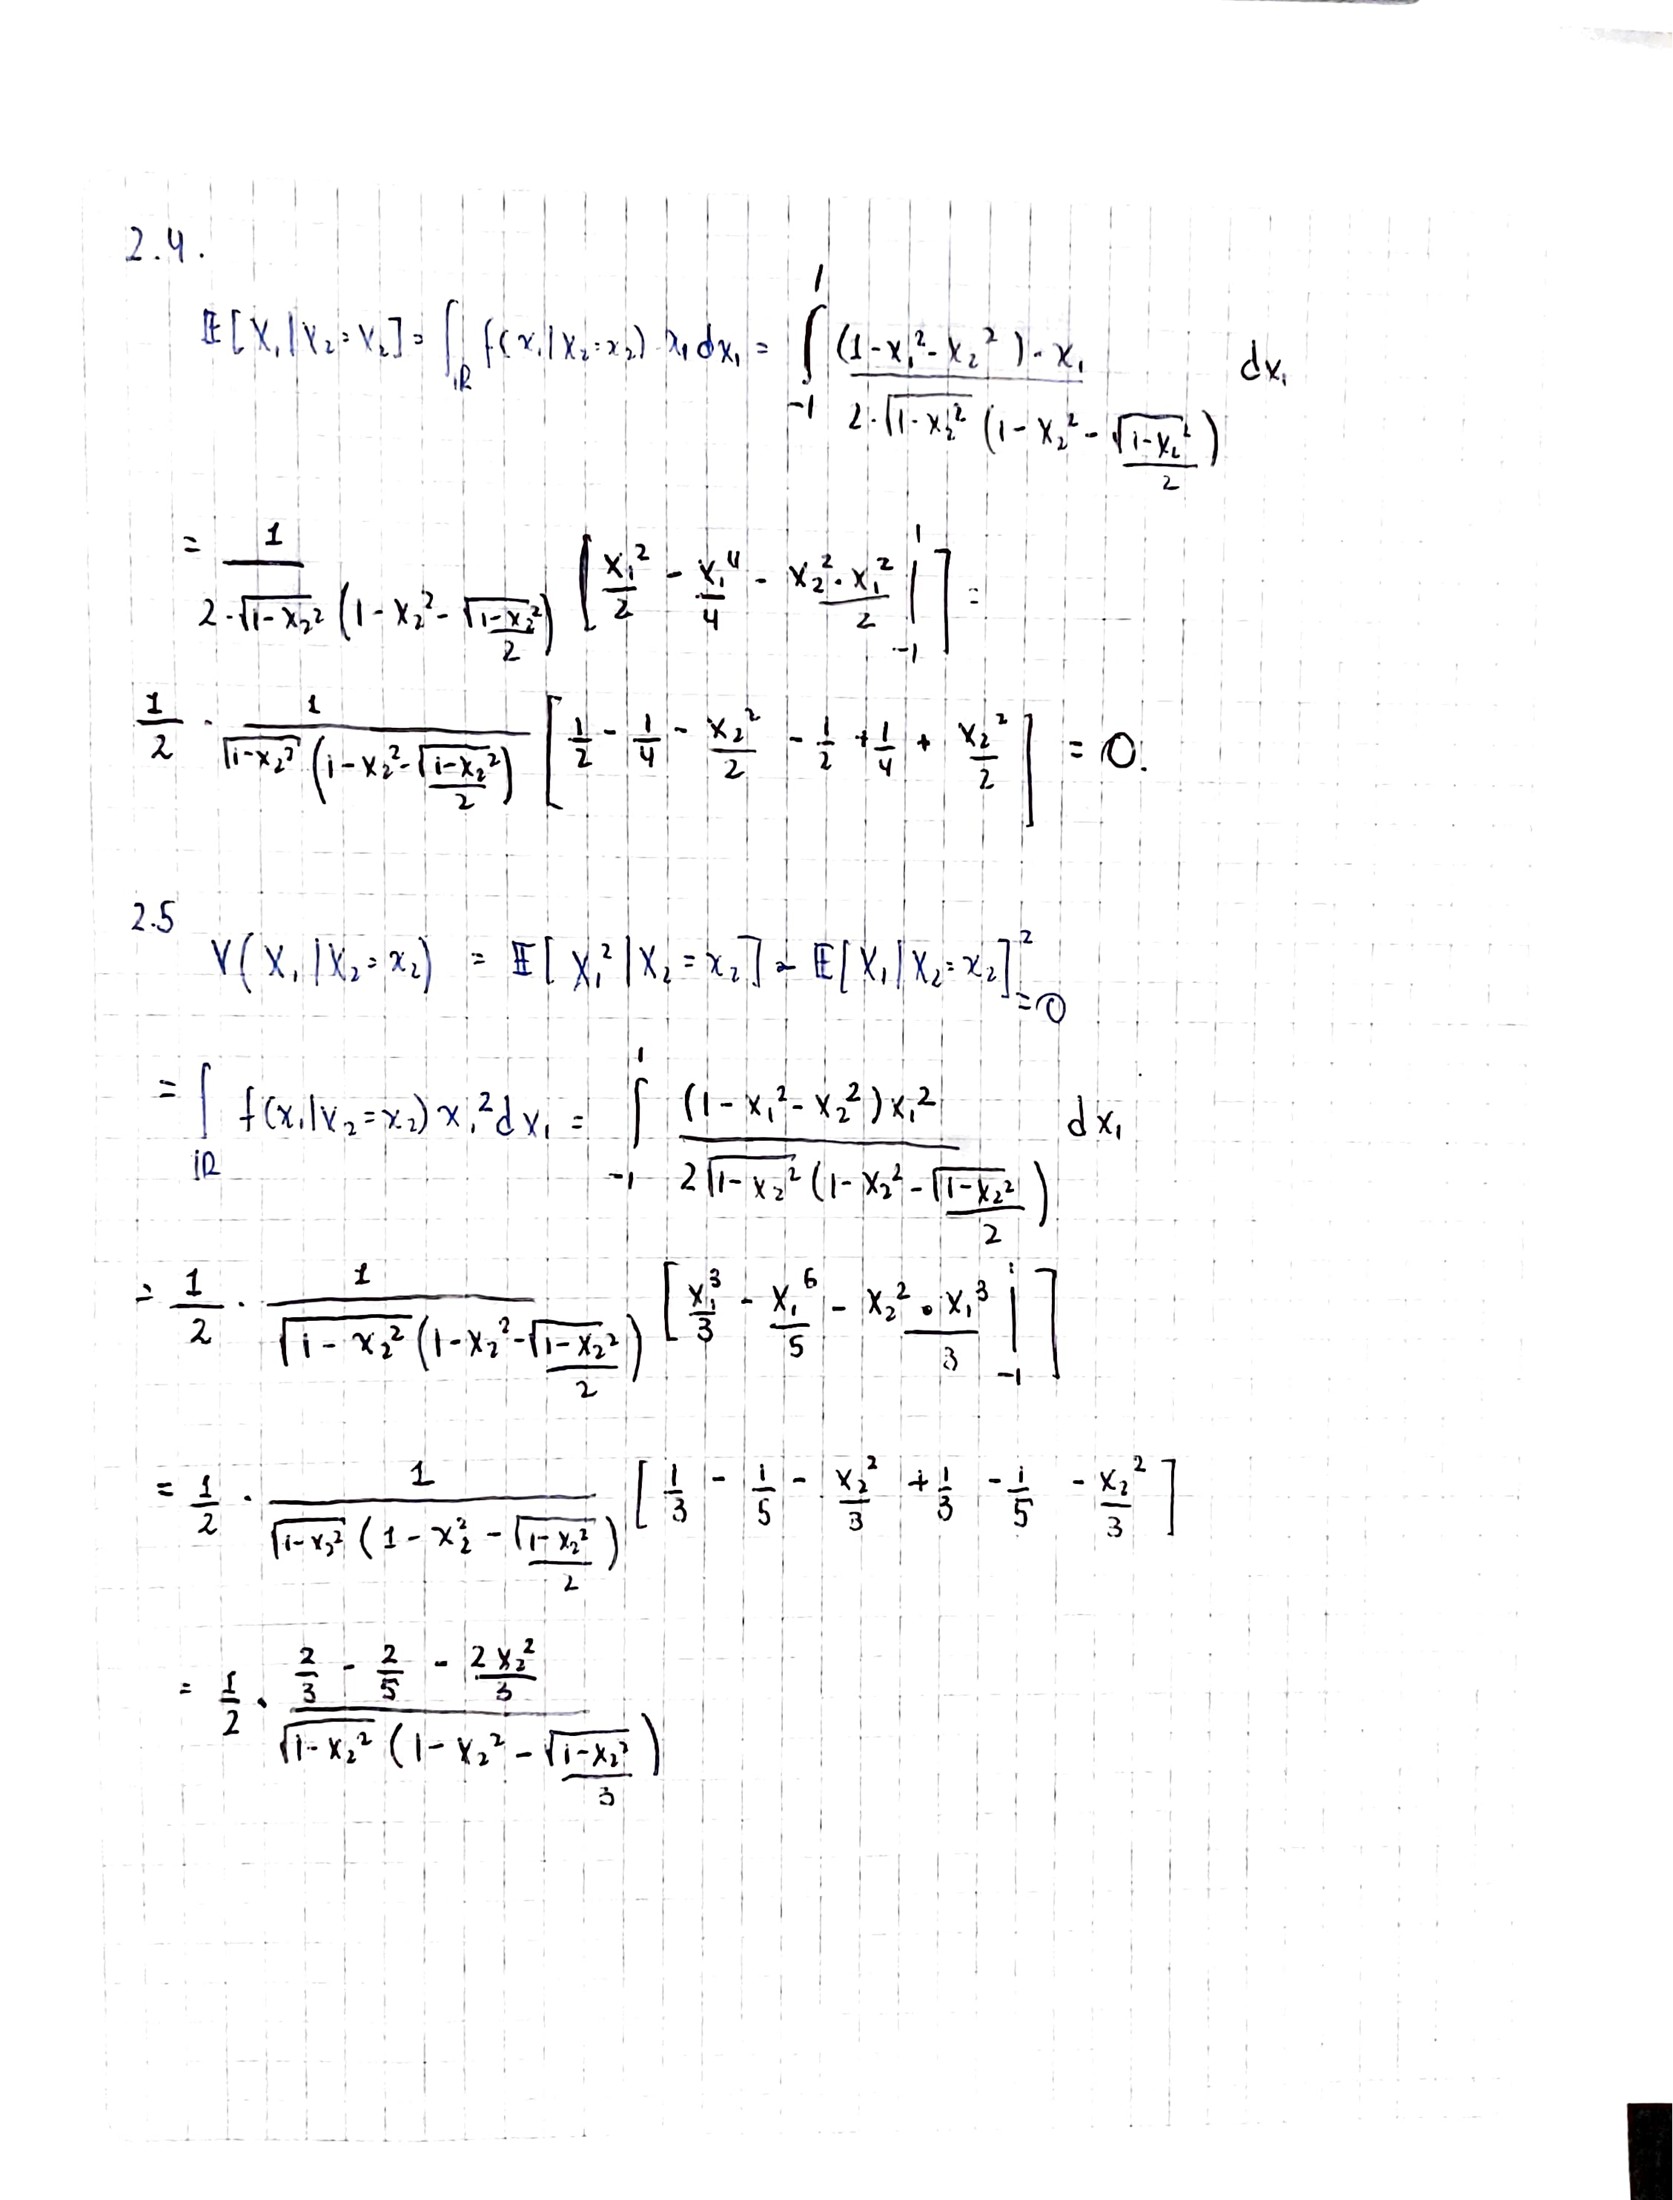 2.4.
𝔼[X₁|X₂=x₂] = ∫_ℝ f(x₁|X₂=x₂)·x₁dx₁ = ∫_{-1}^{1} (1-x₁²-x₂²)·x₁ / (2·√(1-x₂²) (1-x₂²-√(1-x₂²)/2)) dx₁
= 1 / (2·√(1-x₂²) (1-x₂²-√(1-x₂²)/2)) [x₁²/2 - x₁⁴/4 - x₂²·x₁²/2 |_{-1}^{1}] =
1/2 · 1 / (√(1-x₂²) (1-x₂²-√(1-x₂²)/2)) [1/2 - 1/4 - x₂²/2 - 1/2 + 1/4 + x₂²/2] = 0.
2.5
V(X₁|X₂=x₂) = 𝔼[X₁²|X₂=x₂] - 𝔼[X₁|X₂=x₂]² =0
= ∫_ℝ f(x₁|x₂=x₂)x₁²dx₁ = ∫_{-1}^{1} (1-x₁²-x₂²)x₁² / (2√(1-x₂²) (1-x₂²-√(1-x₂²)/2)) dx₁
= 1/2 · 1 / (√(1-x₂²) (1-x₂²-√(1-x₂²)/2)) [x₁³/3 - x₁⁶/5 - x₂²·x₁³/3 |_{-1}^{1}]
= 1/2 · 1 / (√(1-x₂²) (1-x₂²-√(1-x₂²)/2)) [1/3 - 1/5 - x₂²/3 + 1/3 - 1/5 - x₂²/3]
= 1/2 · (2/3 - 2/5 - 2x₂²/3) / (√(1-x₂²) (1-x₂²-√(1-x₂²)/3))